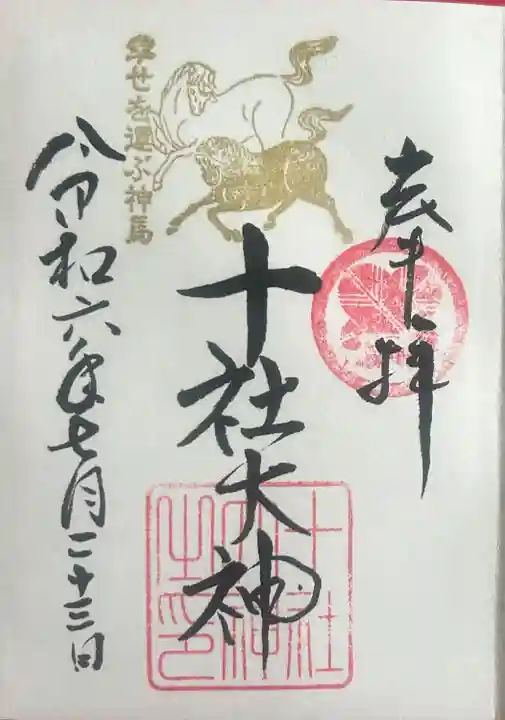 奉拝
幸せを運ぶ神馬
十社大神
十社
大神
之印
令和六年七月二十三日